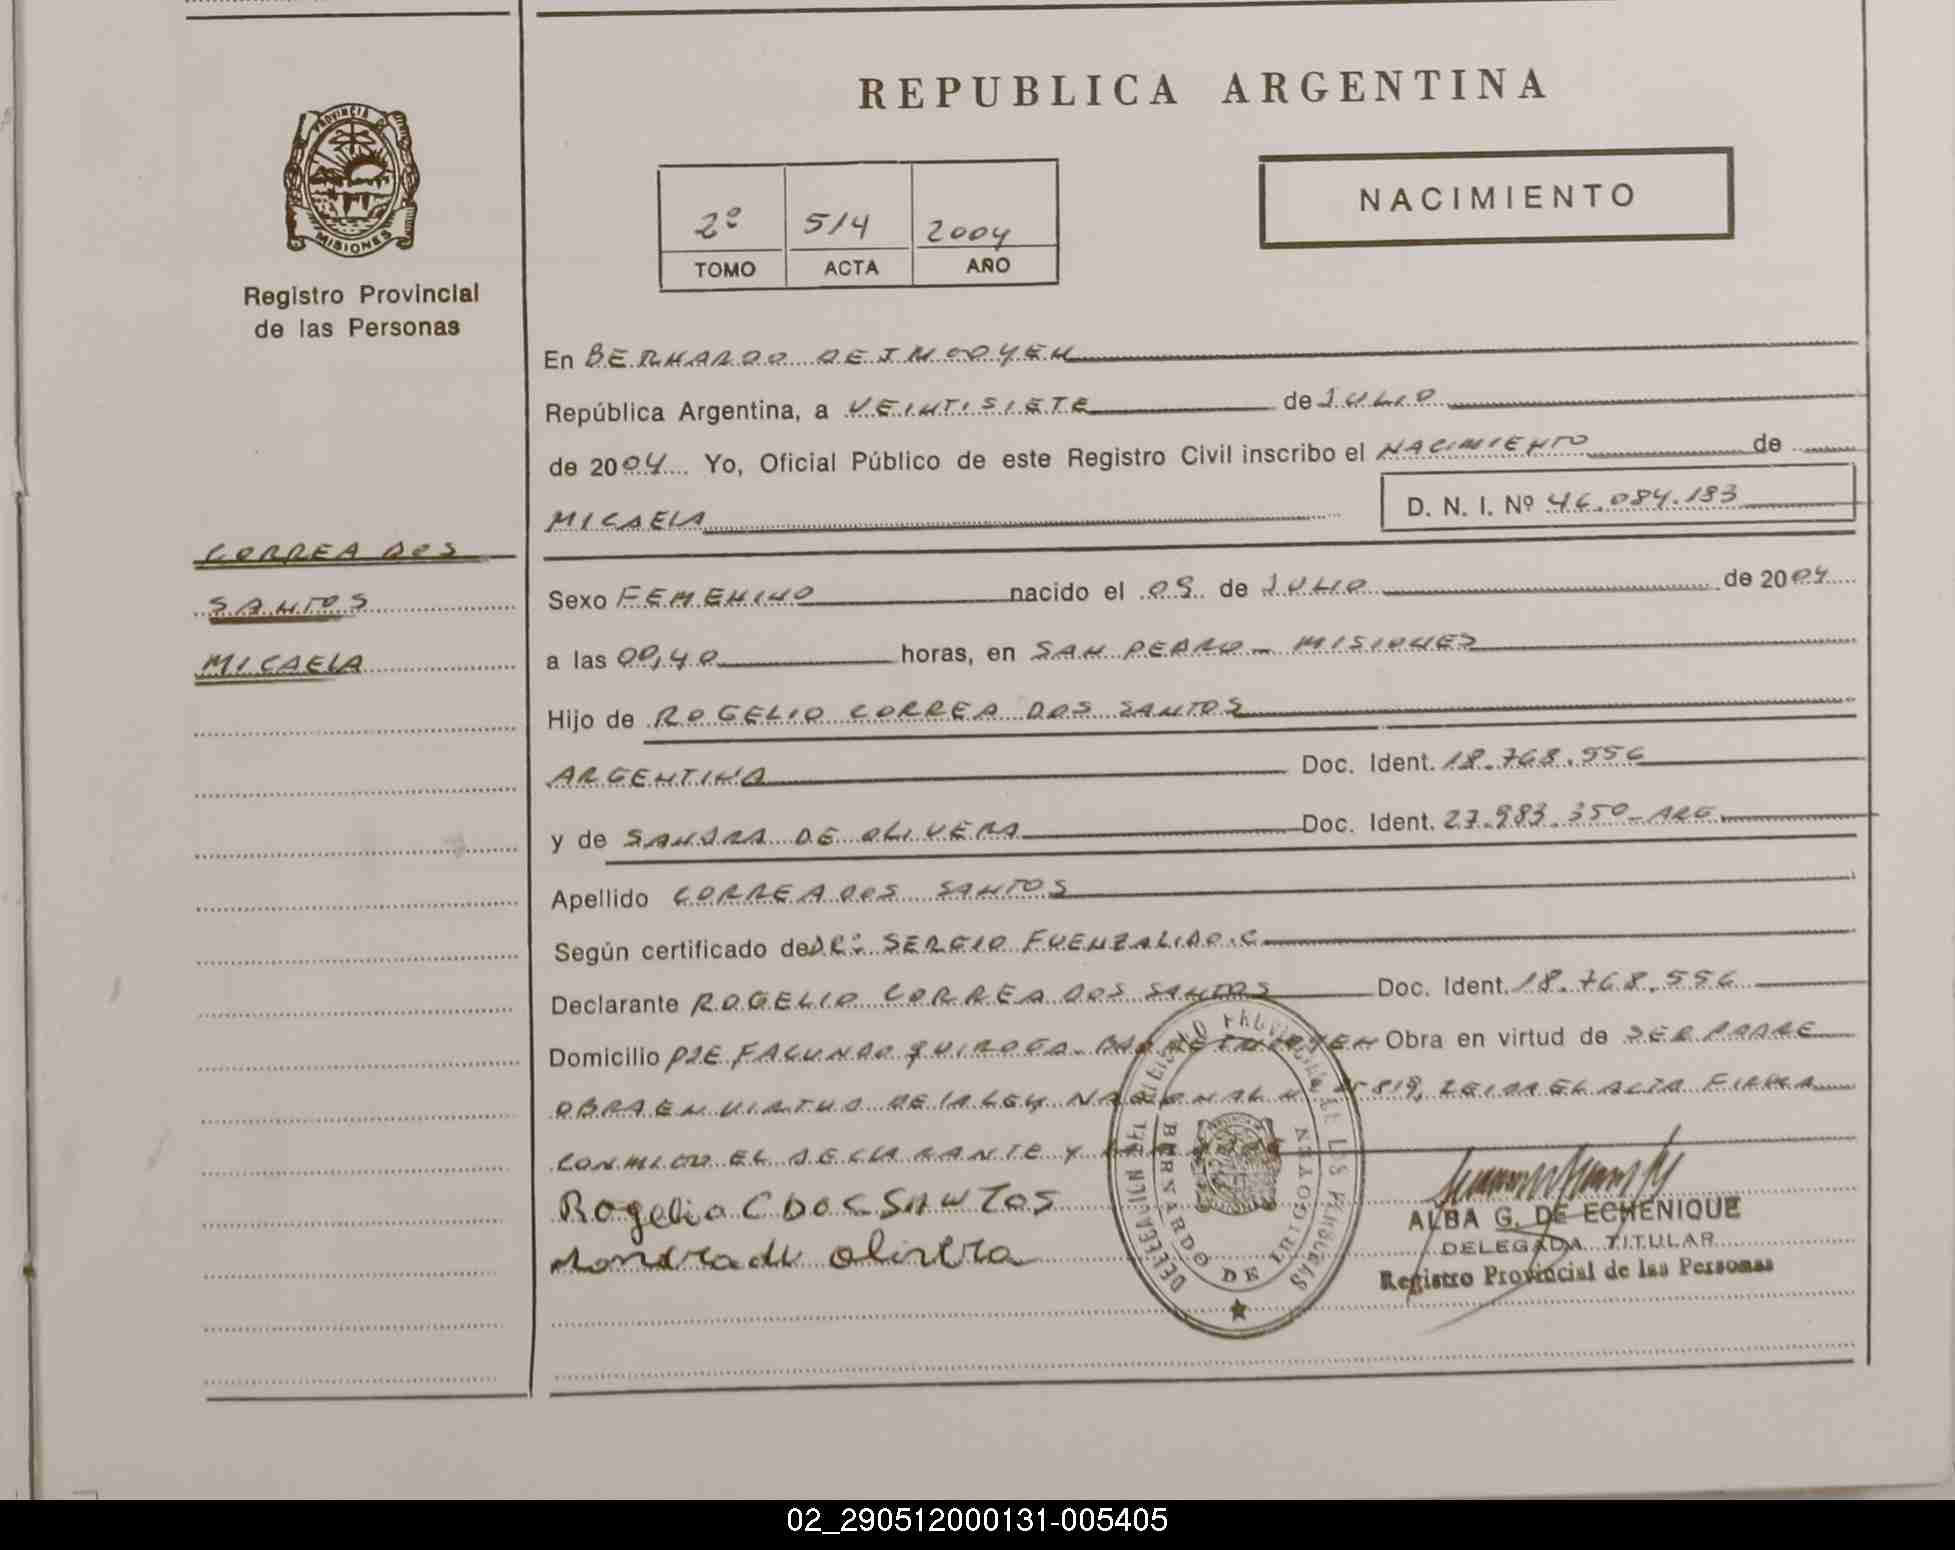 REPUBLICA ARGENTINA
PROVINCIA DE
MISIONES
Registro Provincial
de las Personas
2º 514 2004
TOMO ACTA AÑO
NACIMIENTO
En BERNARDO DE IRIGOYEN
República Argentina, a VEINTISIETE de JULIO
de 2004 Yo, Oficial Público de este Registro Civil inscribo el NACIMIENTO de
MICAELA D. N. I. Nº 46.084.193
CORREA DOS
SANTOS
MICAELA
Sexo FEMENINO nacido el 09 de JULIO de 2004
a las 00,40 horas, en SAN PEDRO - MISIONES
Hijo de ROGELIO CORREA DOS SANTOS
ARGENTINA Doc. Ident. 18.768.556
y de SANDRA DE OLIVERA Doc. Ident. 27.983.350 - ARG.
Apellido CORREA DOS SANTOS
Según certificado de DR: SERGIO FUENZALIDO.C
Declarante ROGELIO CORREA DOS SANTOS Doc. Ident. 18.768.556
Domicilio PJE FACUNDO QUIROGA - Obra en virtud de SER PADRE
OBRA EN VIRTUD DE LA LEY NACIONAL Nº 25819, LEIDA EL ACTA FIRMA
CONMIGO EL DECLARANTE Y
Rogelio C DOS SANTOS
Sandra de Olivera
DELEGACION DEL REGISTRO PROVINCIAL DE LAS PERSONAS
BERNARDO DE IRIGOYEN
ALBA G. DE ECHENIQUE
DELEGADA TITULAR
Registro Provincial de las Personas
02_290512000131-005405